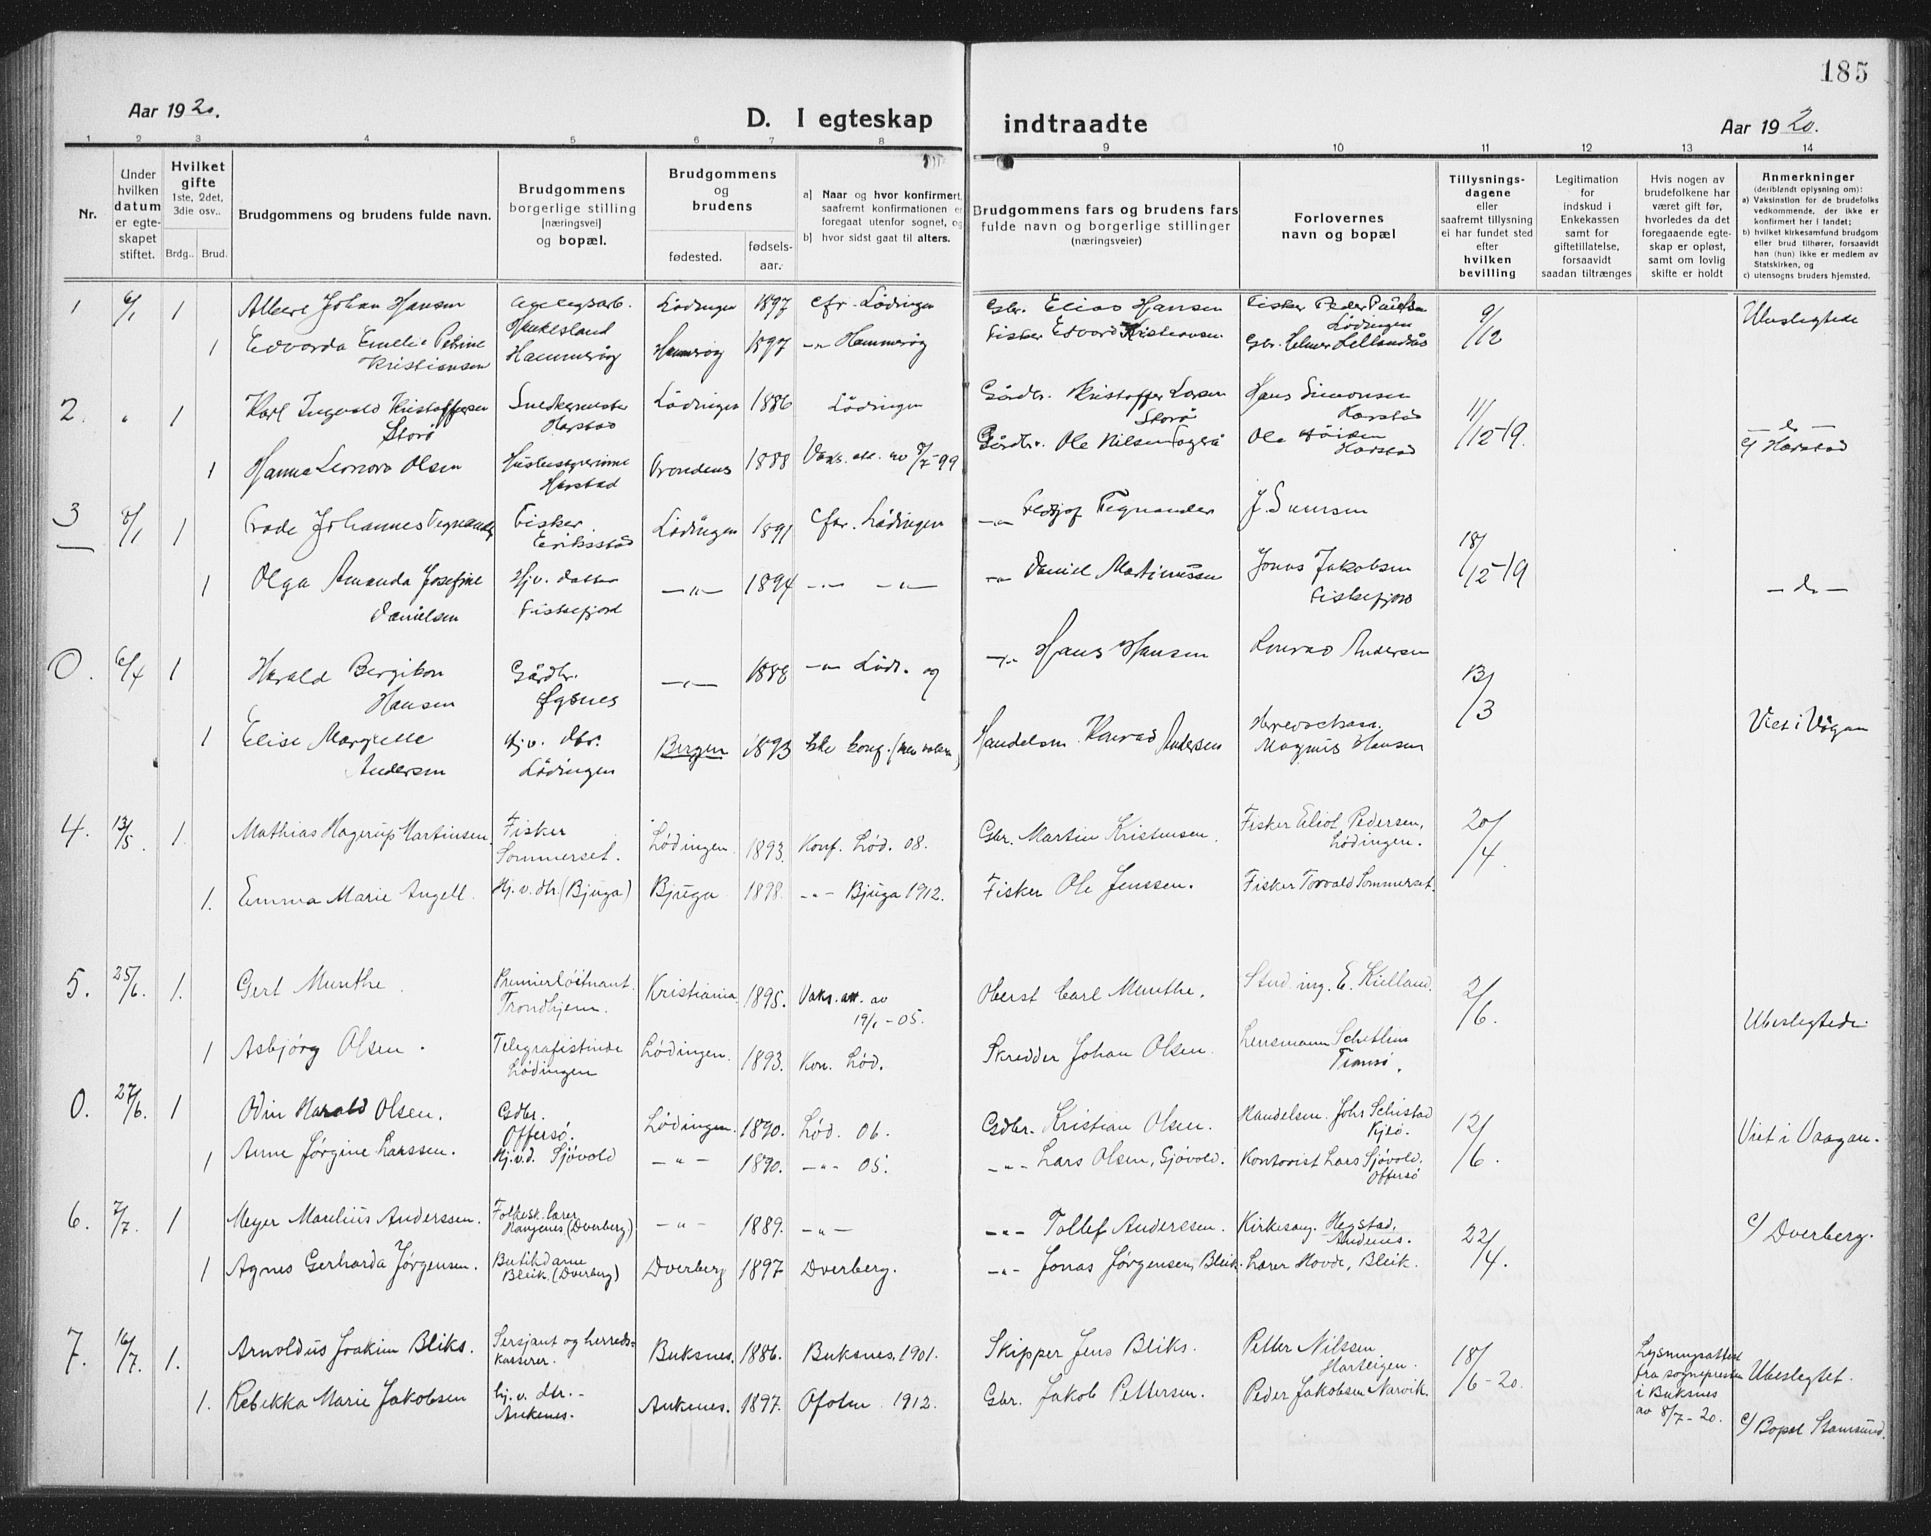 185
Aar 1920.
D. I egteskap indtraadte
Aar 1920.
1 2 3 4 5 6 7 8 9 10 11 12 13 14
Nr.
Under hvilken datum er egteskapet stiftet.
Hvilket gifte 1ste, 2det, 3die osv..
Brdg.. Brud.
Brudgommens og brudens fulde navn.
Brudgommens borgerlige stilling (næringsvei) og bopæl.
Brudgommens og brudens
fødested.
fødsels-aar.
a] Naar og hvor konfirmert, saafremt konfirmationen er foregaat utenfor sognet, og
b] hvor sidst gaat til alters.
Brudgommens fars og brudens fars fulde navn og borgerlige stillinger (næringsveier)
Forlovernes navn og bopæl
Tillysnings-dagene eller saafremt tillysning ei har fundet sted efter hvilken bevilling
Legitimation for indskud i Enkekassen samt for giftetillatelse, forsaavidt saadan tiltrænges
Hvis nogen av brudefolkene har været gift før, hvorledes da det foregaaende egteskap er opløst, samt om lovlig skifte er holdt
Anmerkninger (deriblandt oplysning om):
a) Vaksination for de brudefolks vedkommende, der ikke er konfirmert her i landet;
b) hvilket kirkesamfund brudgom eller brud tilhører, forsaavidt han (hun) ikke er medlem av Statskirken, og
c) utensogns bruders hjemsted.
1 6/1 1 Albert Johan Hansen Lødingen 1897 cfr. Lødingen Gbr. Elias Hansen Fisker Peder Lødingen 9/12 Ubeslegtede
1 Edvarda Emelie Petrine Kristiansen Hammerøy Hammerøy 1897 -"- Hammerøy Fisker Edvard Kristiansen Gbr.
2. " 1 Karl Ingvald Kristoffersen Storø Snedkermester Harstad Lødingen 1886 Lødingen Gårdbr. Kristoffer Larsen Storø Hans Simonsen Harstad 11/12-19. -do-
1 Hanna Leonora Olsen Harstad Trondenes 1888 Vaks. att. av 8/7-99 Gårdbr. Ole Nilsen Ole Harstad c/ Harstad
3 8/1 1 Johannes Tegnander Fisker Erikstad Lødingen 1891 Cfr. Lødingen -"- Tegnander J. 18/12-19
1 Olga Amanda Josefine Danielsen Hjv. datter Fiskefjord -"- 1894 -"- -"- -"- Daniel Martinussen Jonas Jakobsen Fiskefjord -do-
0. 6/4 1 Harald Bergikon Hansen Gårdbr. Øgsnes -"- 1888 -"- Lød. og -"- Hans Hansen Konrad Andersen 13/3
1 Elise Margrethe Andersen Hjv. dtr. Lødingen Bergen 1893 Ikke konf. Handelsm. Konrad Andersen Herredskass. Magnus Hansen Viet i Vågan
4. 13/5. 1. Mathias Hagerup Martinsen. Fisker Sommerset. Lødingen. 1893. Konf. Lød. 08. Gbr. Martin Kristensen. Fisker Eliot Pedersen, Lødingen. 20/4.
1. Emma Marie Angell. Hj.v.dtr. (Bjuga) Bjuga 1898. -"- Bjuga 1912. Fisker Ole Jenssen. Fisker Torvald Sommerset.
5. 25/6. 1. Gert Munthe. Premierløitnant. Trondhjem. Kristiania. 1895. Vaks. att. av 19/1-05. Oberst Carl Munthe. Stud. ing. E. Kielland. 2/6.
1 Asbjørg Olsen. Telegrafistinde Lødingen Lødingen. 1893. Kon. Lød. Skredder Johan Olsen. Lensmann Schetlius Tromsø. Ubeslegtede.
0. 27/6. 1 Odin Harald Olsen. Gdbr. Offersø. Lødingen. 1890. Lød. 06. Gdbr. Kristian Olsen. Handelsm. Joh. Schistad Kjeø. 12/6. Viet i Vaagan.
1 Anne Jørgine Larssen. Hj.v.d. Sjøvold -"- 1890. -"- 05. -"- Lars Olsen, Sjøvold. Kontorist Lars Sjøvold. Offersø
6. 7/7. 1 Meyer Marelius Anderssen. Folkesk. lærer Hangenes (Dverberg) -"- 1889. -"- -"- Tollef Anderssen. Kirkesang. Hegstad, Andenes. 22/4. c/ Dverberg.
1 Agnes Gerharda Jørgensen. Butikdame Bleik. (Dverberg) Dverberg 1897 Dverberg. -"- Jonas Jørgensen, Bleik. Lærer Hovde, Bleik.
7. 16/7. 1. Arnoldus Joakim Bliks. Sersjant og herredskasserer. Buksnes. 1886. Buksnes. 1901. Skipper Jens Bliks. Petter Nilssen Harteigen. 18/6-20. Lysningsattest fra sognepresten i Buksnes av 8/7-20. Ubeslegtet.
1. Rebekka Marie Jakobsen hj.v. dtr. - Ankenes. Ankenes. 1897. Ofoten 1912. Gbr. Jakob Pettersen. Peder Jakobsen Narvik. c/ Bopæl Stamsund.